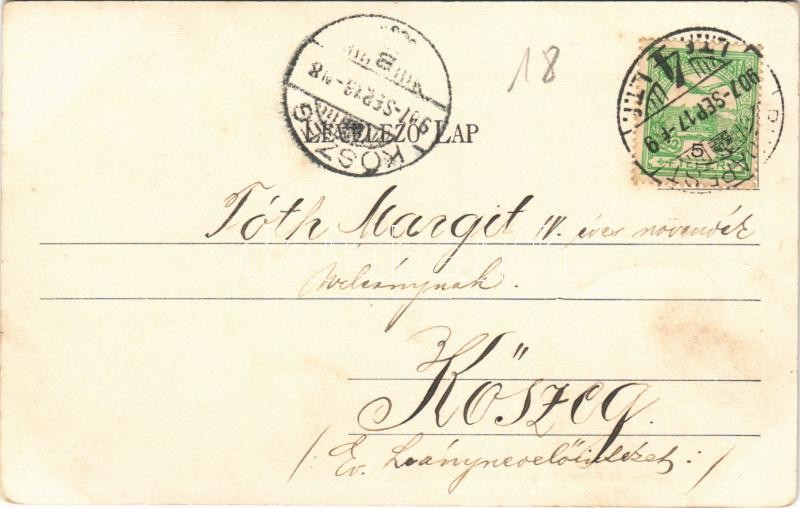 18
LEVELEZŐ LAP
KŐSZEG
907-SEP.18-N8
BUDAPEST
907-SEP.17-
Tóth Margit IV. éves növendék
Kőszeg.
/: Ev. Leánynevelőintézet :/